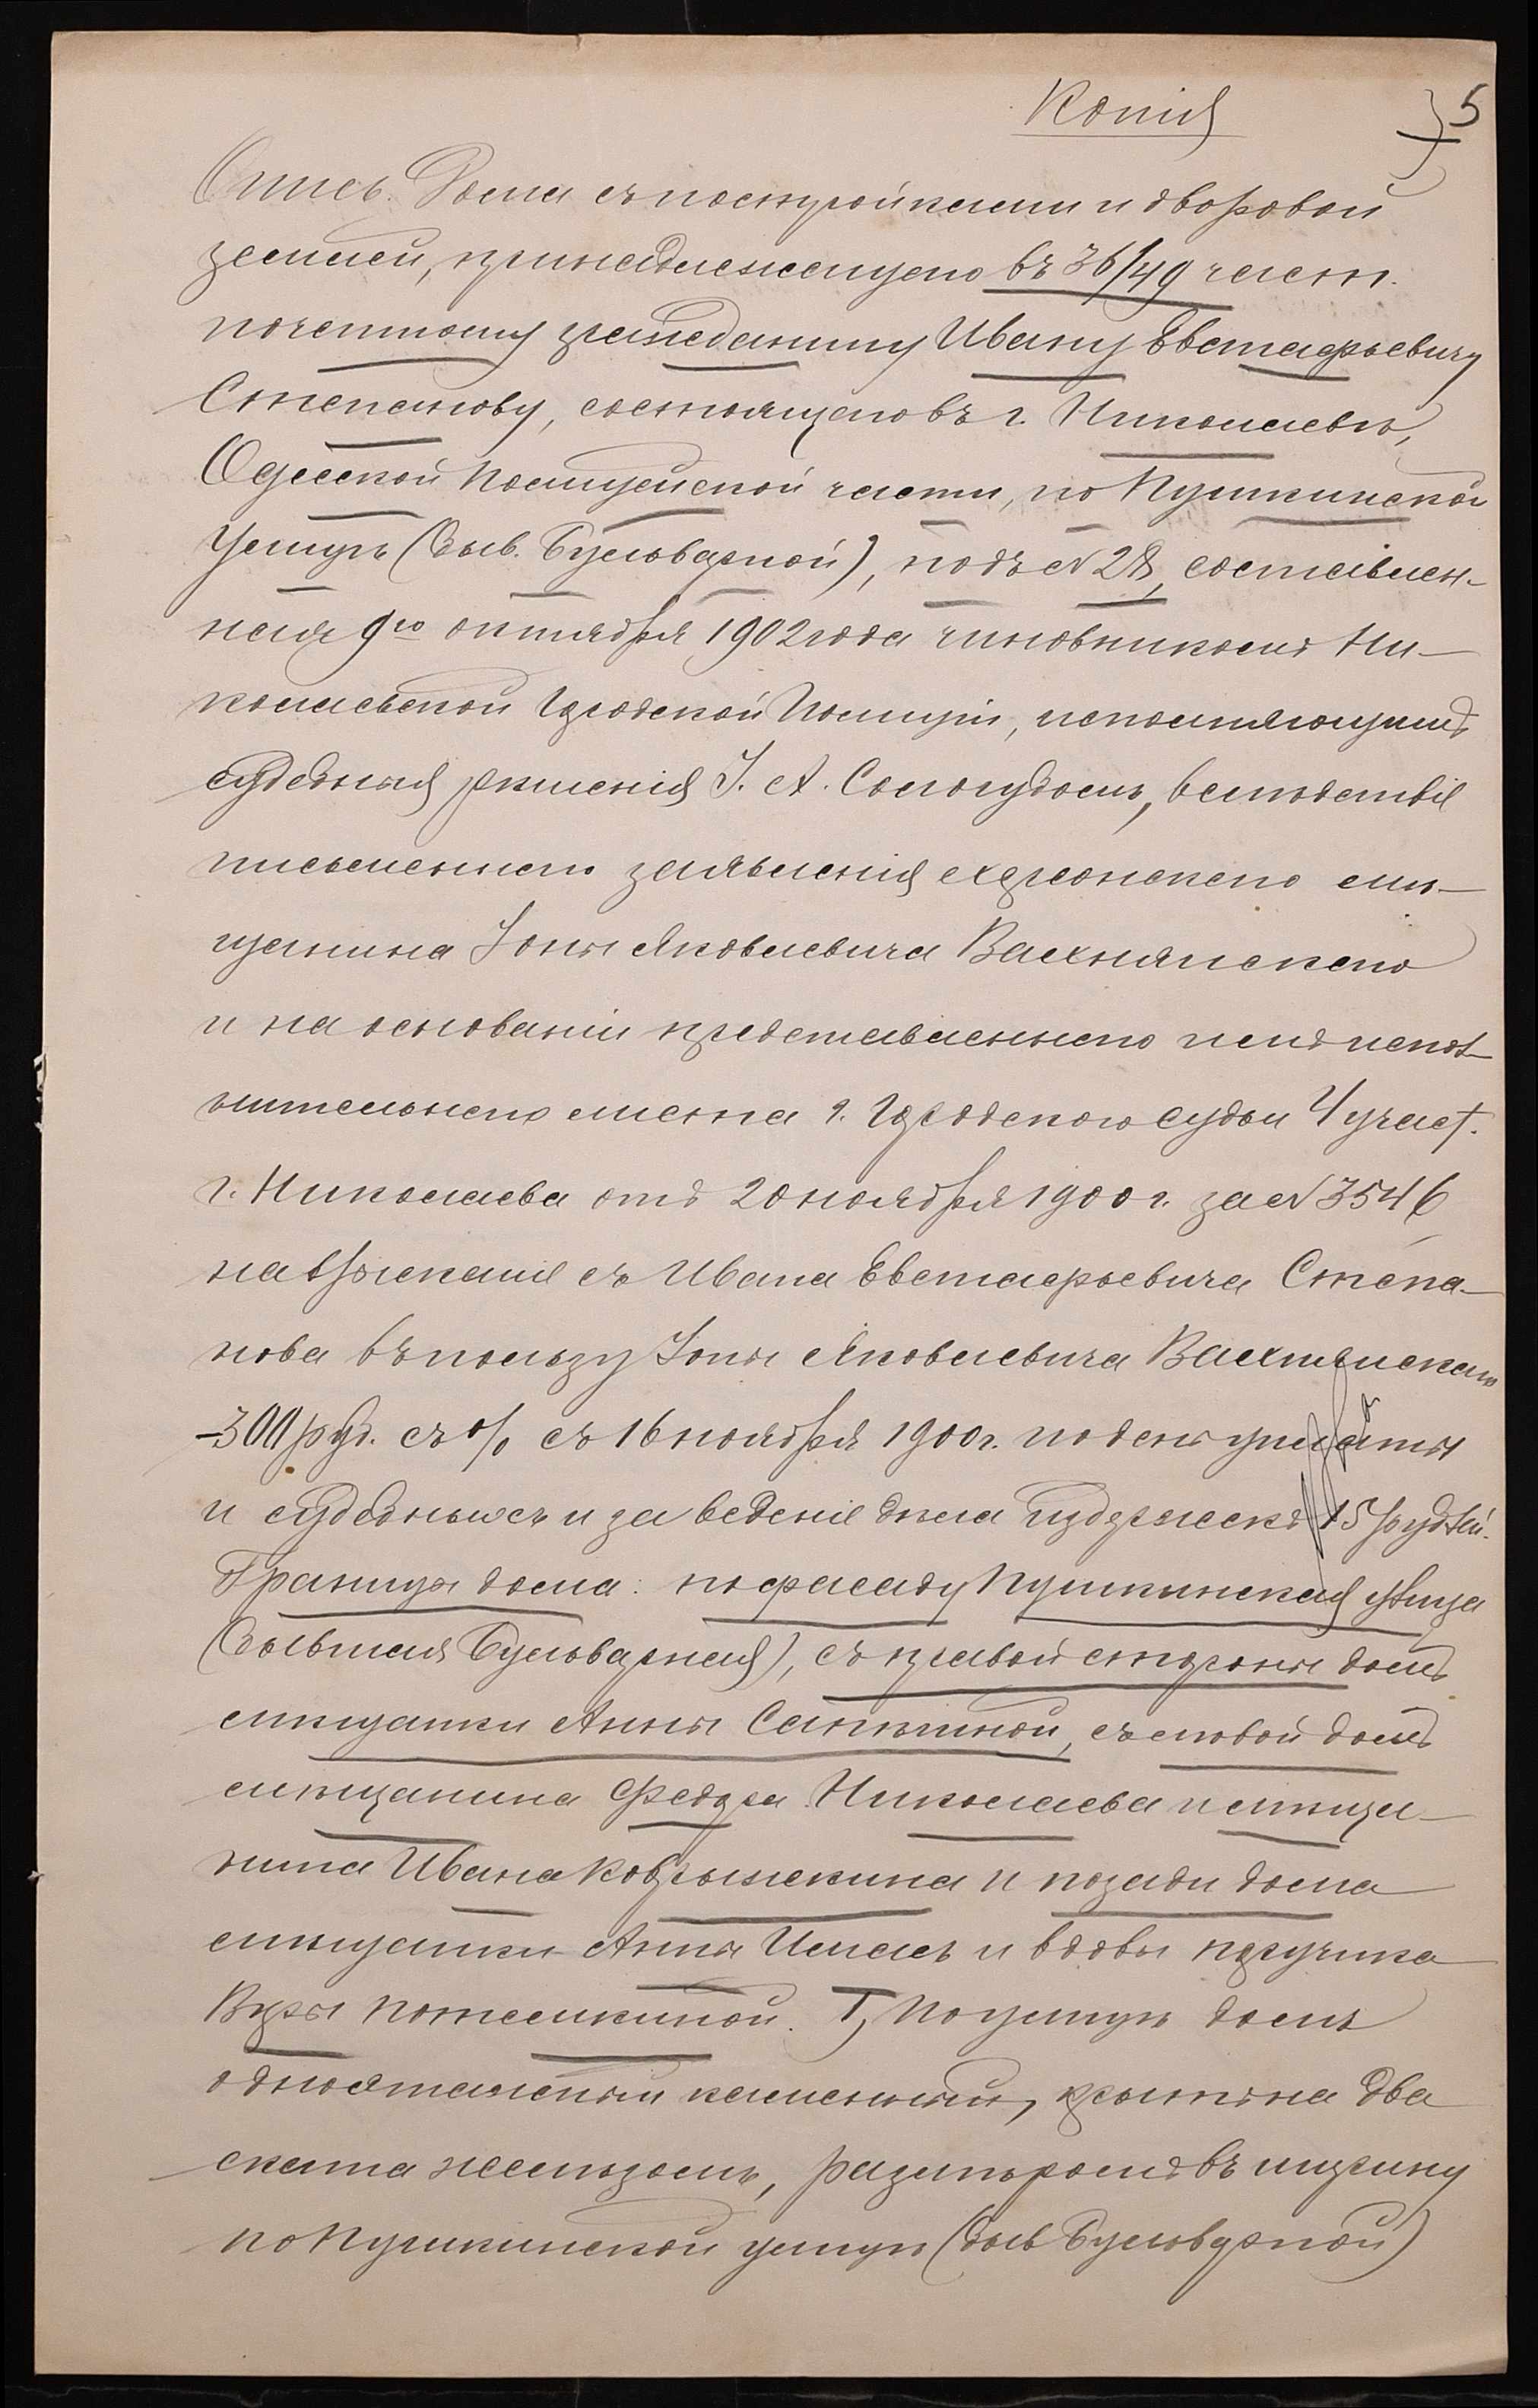 Копія
5
Опись. Дома съ постройками и дворовой
землей, принадлежащего въ 36/49 част.
почетному гражданину Ивану Евстафьевичу
Степанову, состоящего въ г. Николаевѣ,
Одесской полицейской части, по Пушкинской
улицѣ (быв. Бульварной), подъ № 28, составлен-
ная 9го октября 1902 года чиновникомъ Ни-
колаевской Городской Полиціи, исполняющимъ
судебныя рѣшенія І. А. Сологубомъ, вслѣдствіе
письменнаго заявленія херсонскаго мѣ-
щанина Іоны Яковлевича Вахнянскаго
и на основаніи представленнаго имъ испол-
нительнаго листа г. Городского судьи 4 участ.
г. Николаева отъ 20 ноября 1900 г. за № 3546
на взысканіе съ Ивана Евстафьевича Степа-
нова въ пользу Іоны Яковлевича Вахнянскаго
300 руб. съ % съ 16 ноября 1900 г. по день уплаты
и судебныхъ и за веденіе дѣла издержекъ 15 рублей.
Границы дома: по фасаду Пушкинская улица
(бывшая Бульварная), съ правой стороны домъ
мѣщанки Анны Саниной, съ лѣвой домъ
мѣщанина Федора Николаева и мѣща-
нина Ивана Кобрыжскина и позади дома
мѣщанки Анны и вдовы поручика
Вѣры Потемкиной. I, По улицѣ домъ
одноэтажный каменный, крытъ на два
ската желѣзомъ, размѣромъ въ ширину
по Пушкинской улицѣ (быв Бульварной)